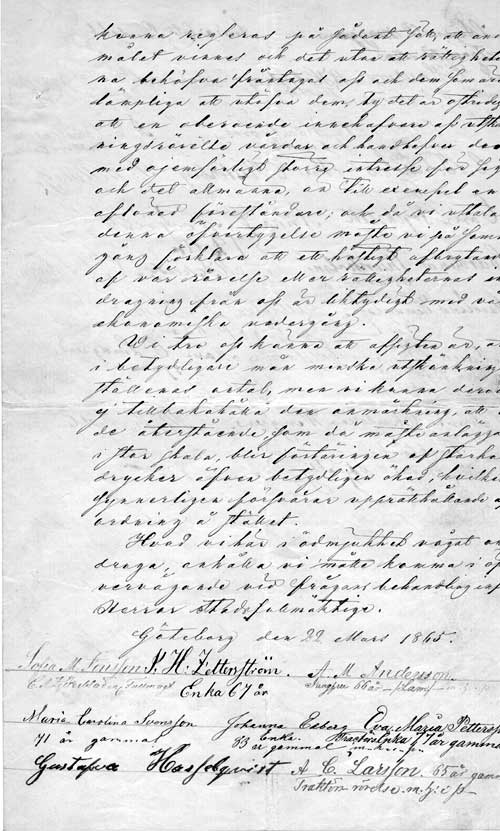 kunna regleras på sådant sätt, att ända
målet vinnes och det utan att rättigheter
na behöfva fråntagas oss och dem som äro
lämpliga att utöfva dem, ty det är ostridigt
att en oberoende innehafvare af utskänk
ningsrörelse vårdar och handhafver den
med ojemförligt större intresse för sig
och det allmänna, än till exempel en
aflönad föreståndare; och då vi uttala
denna öfvertygelse måste vi på samma
gång förklara att ett hastigt afbrytande
af vår rörelse eller rättigheternas in
dragning från oss är liktydigt med vår
ekonomiska undergång.
Vi tro oss känna att afsigten är, att
i betydligare mån minska utskänknings
ställenas antal, men vi kunna dervid
ej tillbakahålla den anmärkning, att
de återstående, som då måste anläggas
i stor skala, blir förtäringen af starka
drycker äfven betydligen ökad, hvilket
synnerligen försvårar upprätthållande af
ordning å stället.
Hvad vi här i ödmjukhet vågat an
draga, anhålla vi måtte komma i öf
vervägande vid frågans behandling
Herrar Stadsfullmäktige.
Göteborg den 22 Mars 1865.
Sofia M. Jensen S. H. Zetterström. A. M. Anderson.
Enka 67 år Jungfru 66 år
Maria Carolina Svensson Johanna Exberg Eva Maria Petterss
71 år gammal 83 Enka. år gammal Traktörsenka 67 år gamma
Gustafva Hasselqvist A. C. Larsson. 65 år gam
Traktörsrörelse